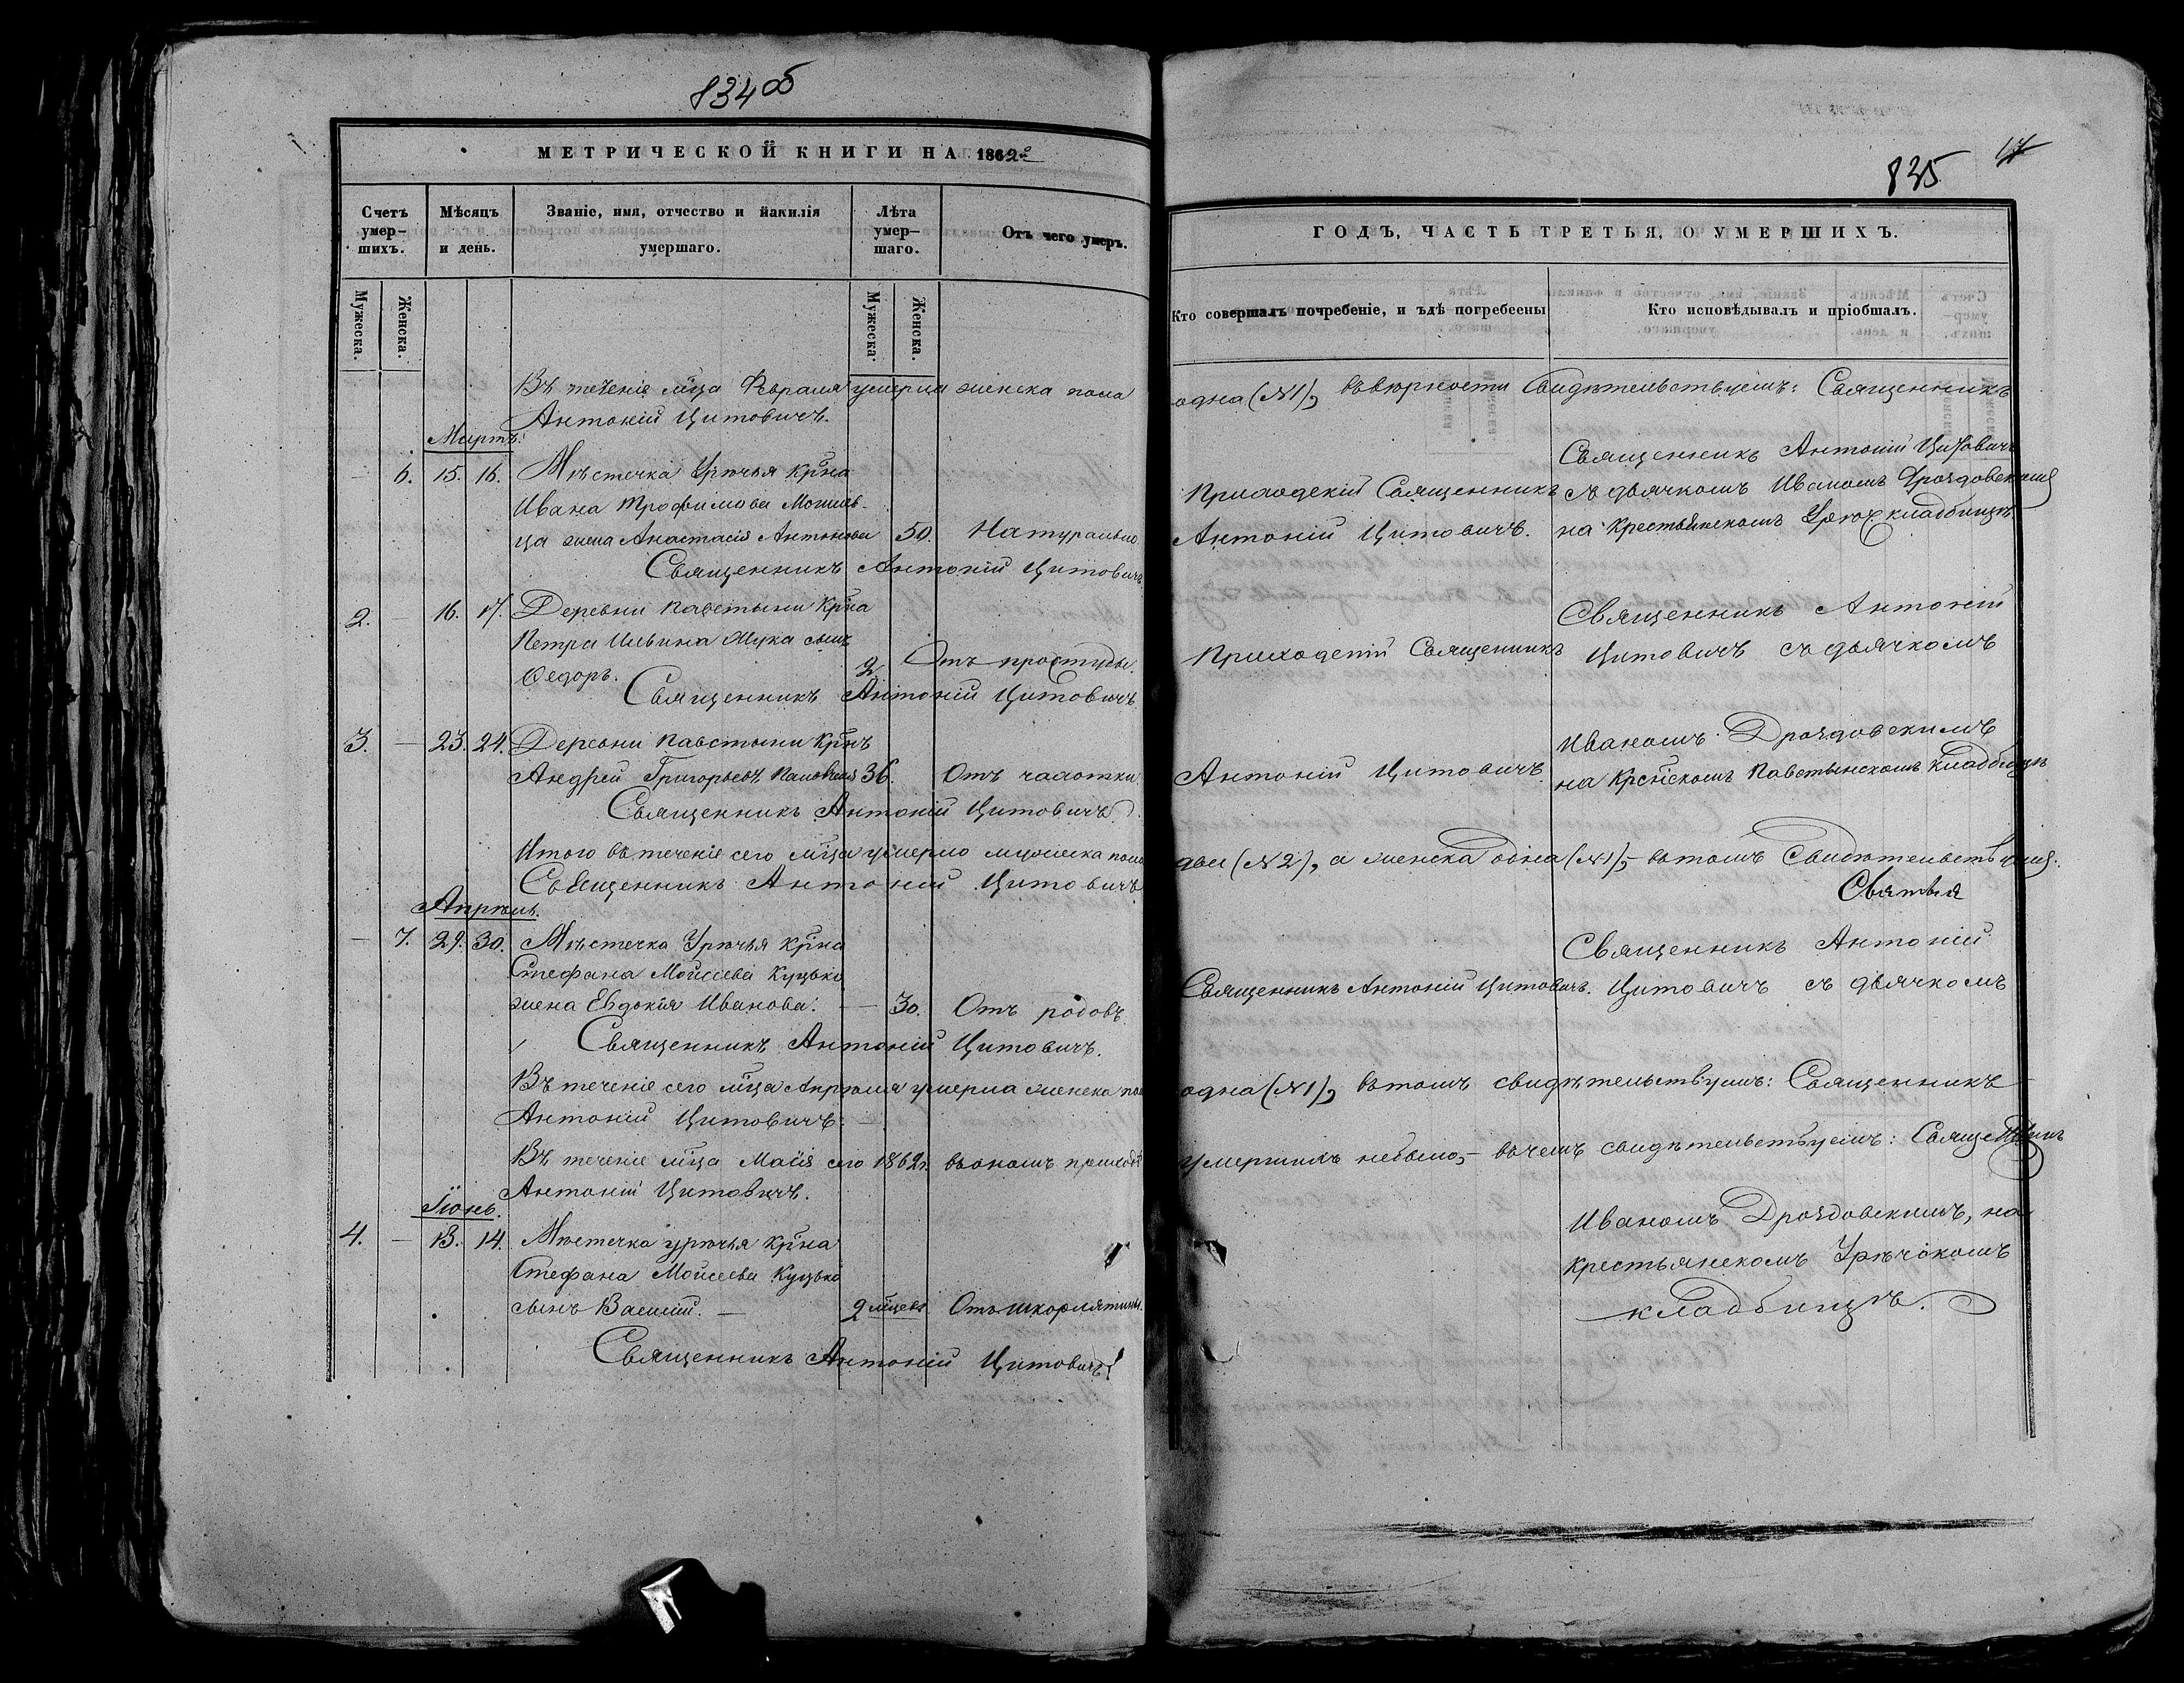 834 об
МЕТРИЧЕСКОЙ КНИГИ НА 1862й
Счетъ умер-шихъ.
Мѣсяцъ и день.
Званіе, имя, отчество и йакилія умершаго.
Лѣта умер-шаго.
Отъ чего умеръ.
Мужеска.
Женска.
Мужеска.
Женска.
Въ теченіе мца Февраля умерла женска пола
Антоній Цитовичъ.
Мартъ.
— 6. 15. 16. Мѣстечка Урѣчья кр̃на
Ивана Трофимова
ца жена Анастасія Антонова 50. Натурально
Священникъ Антоній Цитовичъ
2. — 16. 17. Деревни Павстыни Кр̃на
Петра Ильина Жука сынъ
Ѳедоръ. 2 Отъ простуды.
Священникъ Антоній Цитовичъ
3. — 23. 24. Деревни Павстыни Кр̃нъ
Андрей Григорьевъ 36. Отъ чахотки
Священникъ Антоній Цитовичъ.
Итого въ теченіе сего мца умерло мужеска пола
Священникъ Антоній Цитовичъ
Апрѣль.
— 7. 29. 30. Мѣстечка Урѣчья кр̃на
Стефана Моисеева Куцько
жена Евдокія Иванова. — 30. Отъ родовъ.
Священникъ Антоній Цитовичъ.
Въ теченіе сего мца Апрѣля умерла женска пол
Антоній Цитовичъ.
Въ теченіе мца Маія сего 1862 г. въ ономъ приходѣ
Антоній Цитовичъ.
Іюнь.
4. — 13. 14. Мѣстечка Урѣчья кр̃на
Стефана Моисеева Куцько
сынъ Василій. — 2 мцевъ Отъ шкорлятины.
Священникъ Антоній Цитовичъ
835 17
ГОДЪ, ЧАСТЬ ТРЕТЬЯ, О УМЕРШИХЪ.
Кто совершалъ почребеніе, и ъдѣ погребеены
Кто исповѣдывалъ и пріобшалъ.
одна (№1), въ вѣрности свидѣтельствуемъ: Священникъ
Священникъ Антоній Цитовичъ
Приходскій Священникъ съ дьячкомъ Иваномъ Дроздовскимъ
Антоній Цитовичъ. на Крестьянскомъ Урѣч. кладбищѣ
Священникъ Антоній
Приходскій Священникъ Цитовичъ съ дьячкомъ
Иваномъ Дроздовскимъ
Антоній Цитовичъ. на Кр̃нскомъ Павстынскомъ кладбищѣ
два (№2), а женска одна (№1), — въ томъ Свидѣтельствуемъ:
Святыя
Священникъ Антоній
Священникъ Антоній Цитовичъ. Цитовичъ съ дьячкомъ
одна (№1), въ томъ свидѣтельствуемъ: Священникъ
умершихъ небыло, — въ чемъ свидѣтельствуемъ: Священникъ
Иваномъ Дроздовскимъ, на
крестьянскомъ Урѣчскомъ
кладбищѣ.